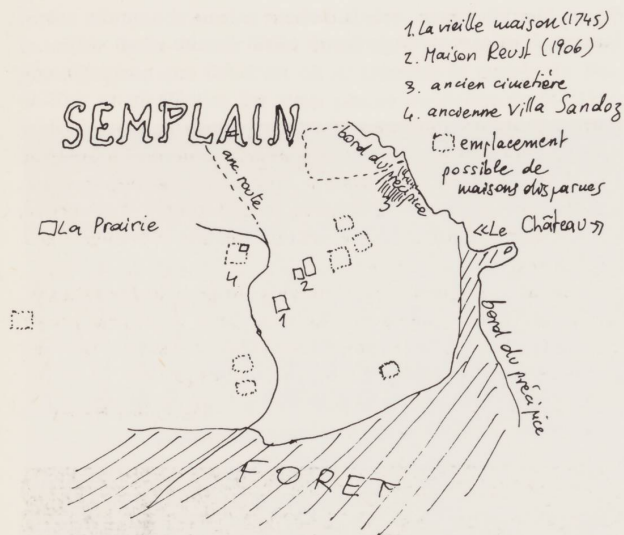 1. La vieille maison (1745)
2. Maison Reust (1906)
3. ancien cimetière
4. ancienne Villa Sandoz
emplacement
possible de
maisons disparues
SEMPLAIN
anc. route
bord du précipice
3
«Le Château»
La Prairie
4
2
1
bord du précipice
FORET